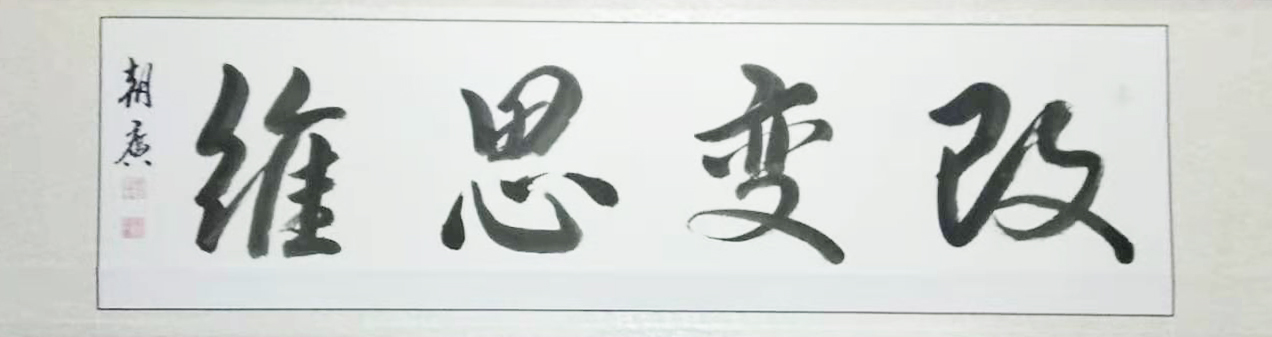 改变思维
朝广